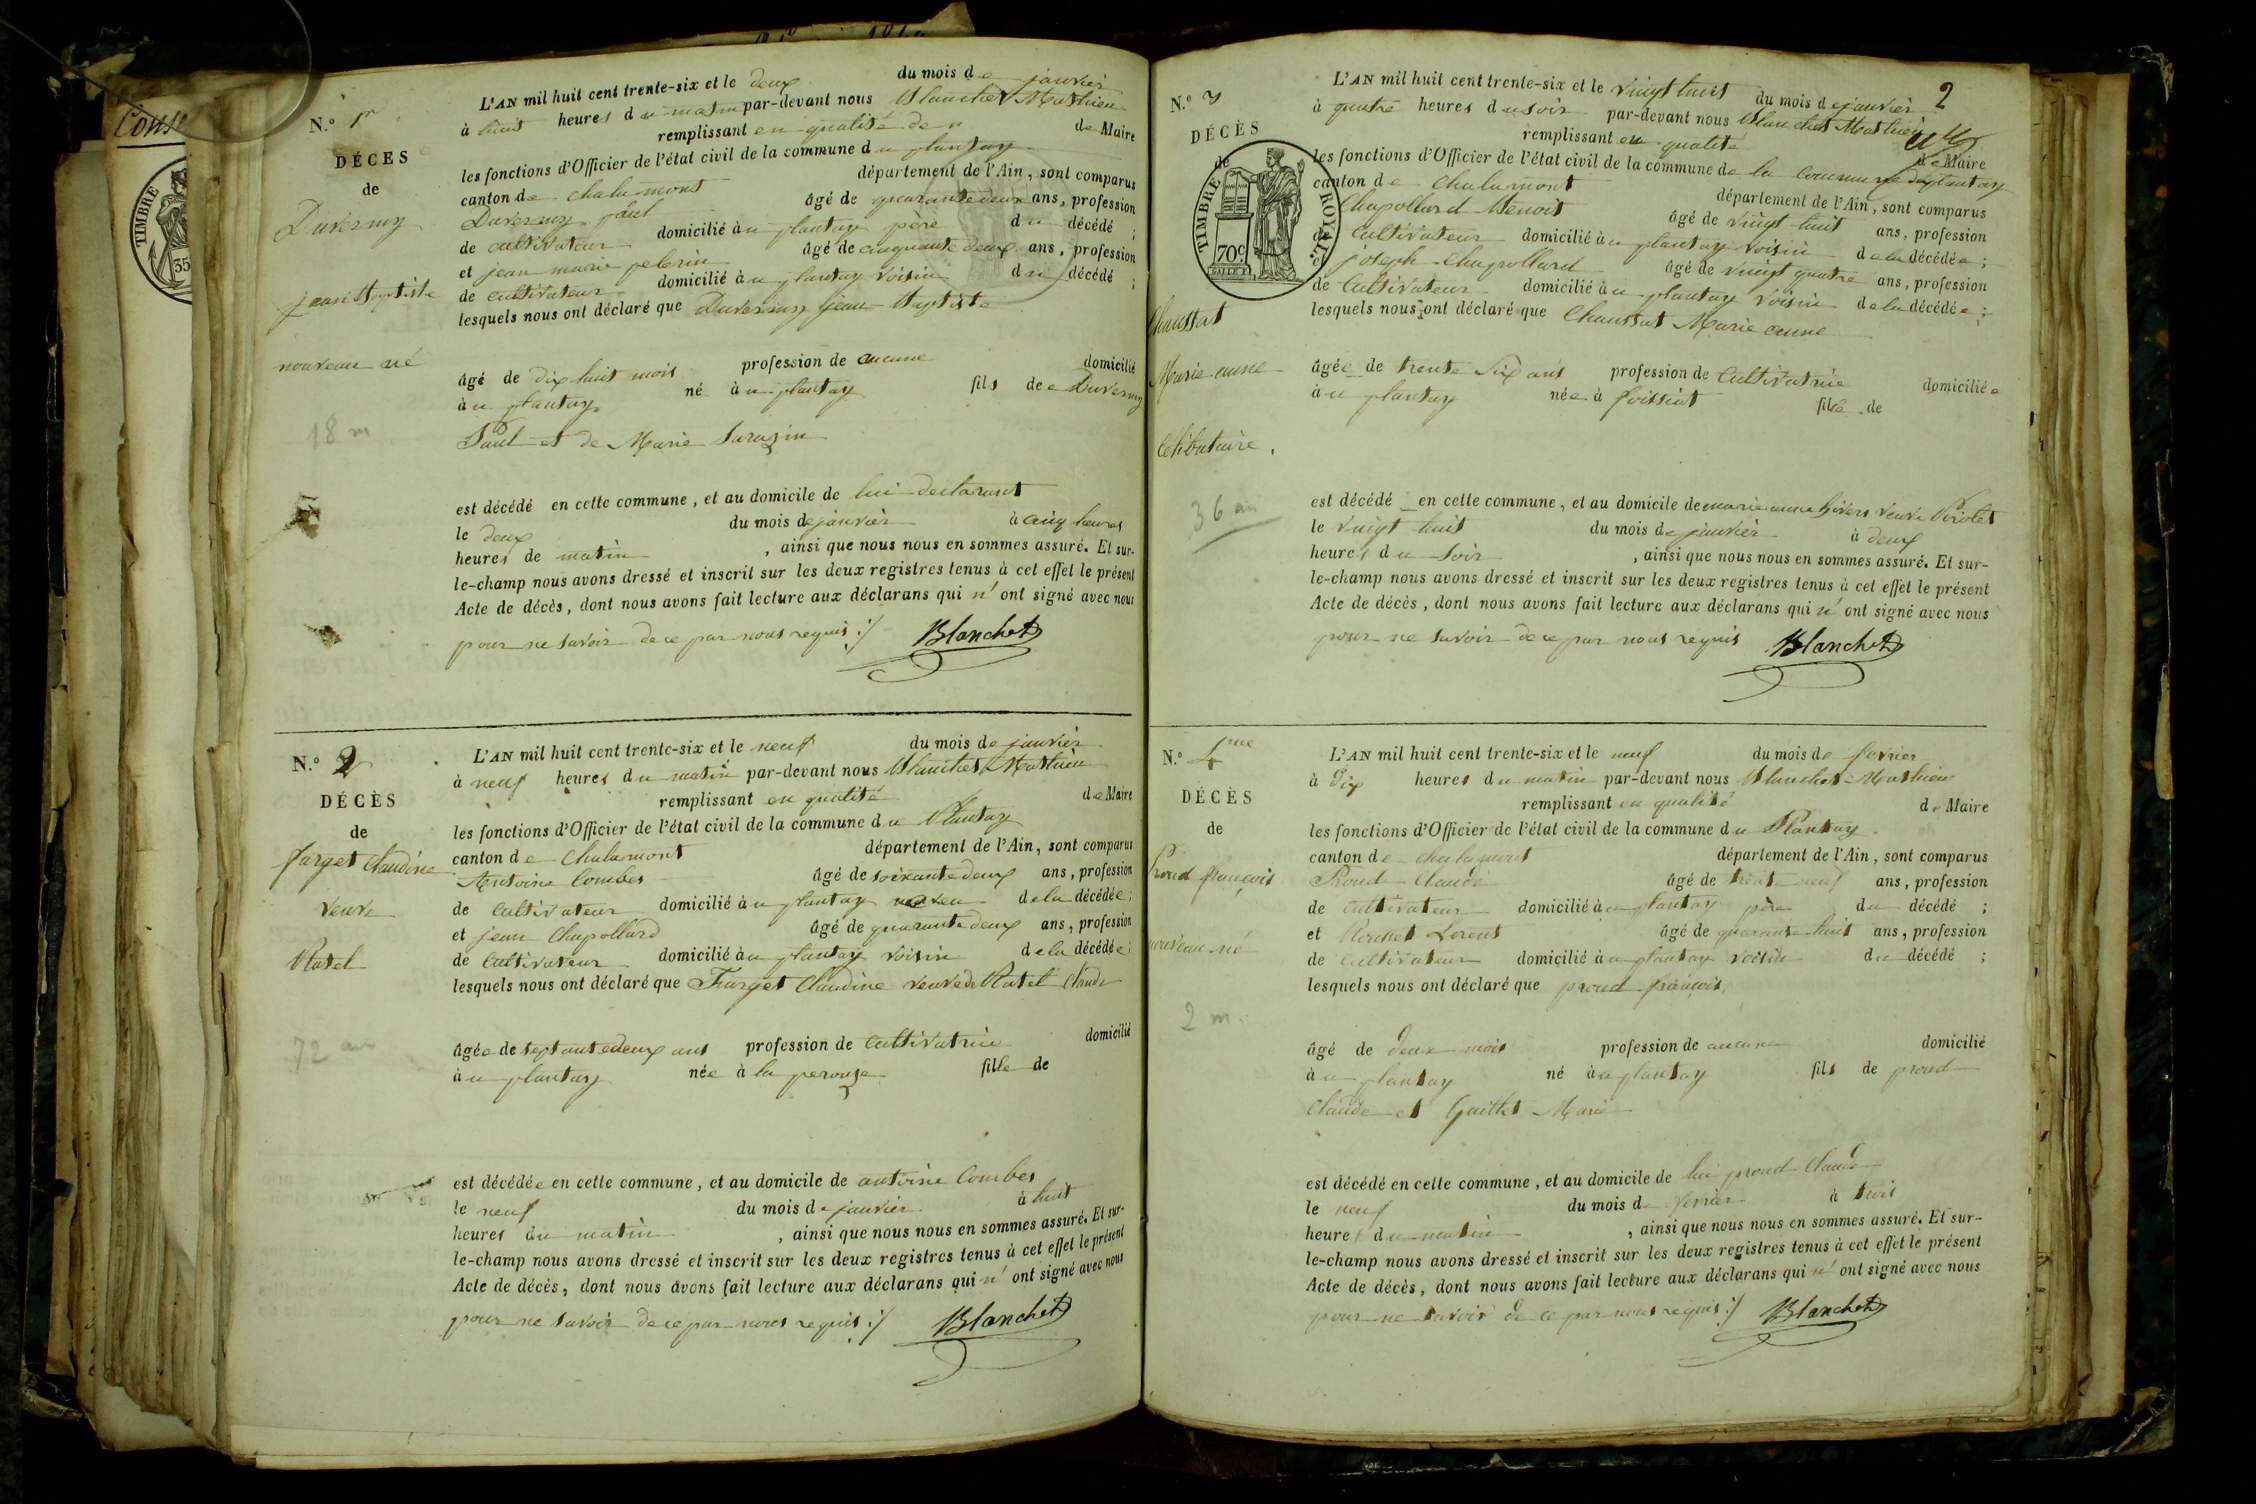 N.o 1r
DÉCES
de
Duverny
jean Baptiste
nouveau né
18 m
L'AN mil huit cent trente-six et le deux du mois de janvier
à huit heures du matin par-devant nous Blanchet Mathieu
remplissant en qualité de Maire
les fonctions d'Officier de l'état civil de la commune du plantay
canton de chalamont département de l'Ain, sont comparus
Duverny paul âgé de quarante deux ans, profession
de cultivateur domicilié au plantay père du décédé ;
et jean marie pelerin âgé de cinquante deux ans, profession
de cultivateur domicilié au plantay voisin du décédé ;
lesquels nous ont déclaré que Duverny jean Baptiste
âgé de dix huit mois profession de aucune domicilié
au plantay né au plantay fils de Duverny
Paul et de Marie Sarazin
est décédé en cette commune, et au domicile de lui declarant
le deux du mois de janvier à cinq heures
heures de matin , ainsi que nous nous en sommes assuré. Et sur-
le-champ nous avons dressé et inscrit sur les deux registres tenus à cet effet le présent
Acte de décès, dont nous avons fait lecture aux déclarans qui n' ont signé avec nous
pour ne savoir de ce par nous requis :/ Blanchet
N.o 2
DÉCÈS
de
farget Claudine
veuve
Ratel
72 ans
L'AN mil huit cent trente-six et le neuf du mois de janvier
à neuf heures du matin par-devant nous Blanchet Mathieu
remplissant en qualité de Maire
les fonctions d'Officier de l'état civil de la commune du Plantay
canton de Chalamont département de l'Ain, sont comparus
Antoine Combes âgé de soixante deux ans, profession
de cultivateur domicilié au plantay neveu de la décédée ;
et jean Chapollard âgé de quarante deux ans, profession
de cultivateur domicilié au plantay voisin de la décédée ;
lesquels nous ont déclaré que Farget Claudine veuve de Ratel Claude
âgée de septante deux ans profession de cultivatrice domicilié
au plantay née à la perouze fille de
est décédée en cette commune, et au domicile de antoine Combes
le neuf du mois de janvier à huit
heures du matin , ainsi que nous nous en sommes assuré. Et sur-
le-champ nous avons dressé et inscrit sur les deux registres tenus à cet effet le présent
Acte de décès, dont nous avons fait lecture aux déclarans qui n' ont signé avec nous
pour ne savoir de ce par nous requis :/ Blanchet
2
N.o 3
DÉCÈS
de
TIMBRE ROYAL
70c
Chaussat
Marie anne
Celibataire,
36 an
L'AN mil huit cent trente-six et le vingt huit du mois de janvier
à quatre heures du soir par-devant nous Blanchet Mathieu
remplissant en qualité de Maire
les fonctions d'Officier de l'état civil de la commune de la commune du plantay
canton de Chalamont département de l'Ain, sont comparus
Chapollard Benoit âgé de vingt huit ans, profession
de Cultivateur domicilié au plantay voisin de la décédée ;
joseph Chapollard âgé de vingt quatre ans, profession
de Cultivateur domicilié au plantay voisin de la décédée ;
lesquels nous ont déclaré que Chaussat Marie anne
âgée de trente six ans profession de Cultivatrice domiciliée
au plantay née à foissiat fille de
est décédé en cette commune, et au domicile de marie anne veuve
le vingt huit du mois de janvier à deux
heures du soir , ainsi que nous nous en sommes assuré. Et sur-
le-champ nous avons dressé et inscrit sur les deux registres tenus à cet effet le présent
Acte de décès, dont nous avons fait lecture aux déclarans qui n' ont signé avec nous
pour ne savoir de ce par nous requis Blanchet
N.o 4me
DÉCÈS
de
Proud françois
nouveau né
2 m.
L'AN mil huit cent trente-six et le neuf du mois de fevrier
à dix heures du matin par-devant nous Blanchet Mathieu
remplissant en qualité de Maire
les fonctions d'Officier de l'état civil de la commune du Plantay
canton de chalamont département de l'Ain, sont comparus
Proud Claude âgé de trente neuf ans, profession
de cultivateur domicilié au plantay père du décédé ;
et Lorent âgé de quarante huit ans, profession
de cultivateur domicilié au plantay voisin du décédé ;
lesquels nous ont déclaré que proud françois
âgé de deux mois profession de aucune domicilié
au plantay né au plantay fils de proud
Claude et Guillet Marie
est décédé en cette commune, et au domicile de lui proud Claude
le neuf du mois de fevrier à trois
heures du matin , ainsi que nous nous en sommes assuré. Et sur-
le-champ nous avons dressé et inscrit sur les deux registres tenus à cet effet le présent
Acte de décès, dont nous avons fait lecture aux déclarans qui n' ont signé avec nous
pour ne savoir de ce par nous requis :/ Blanchet